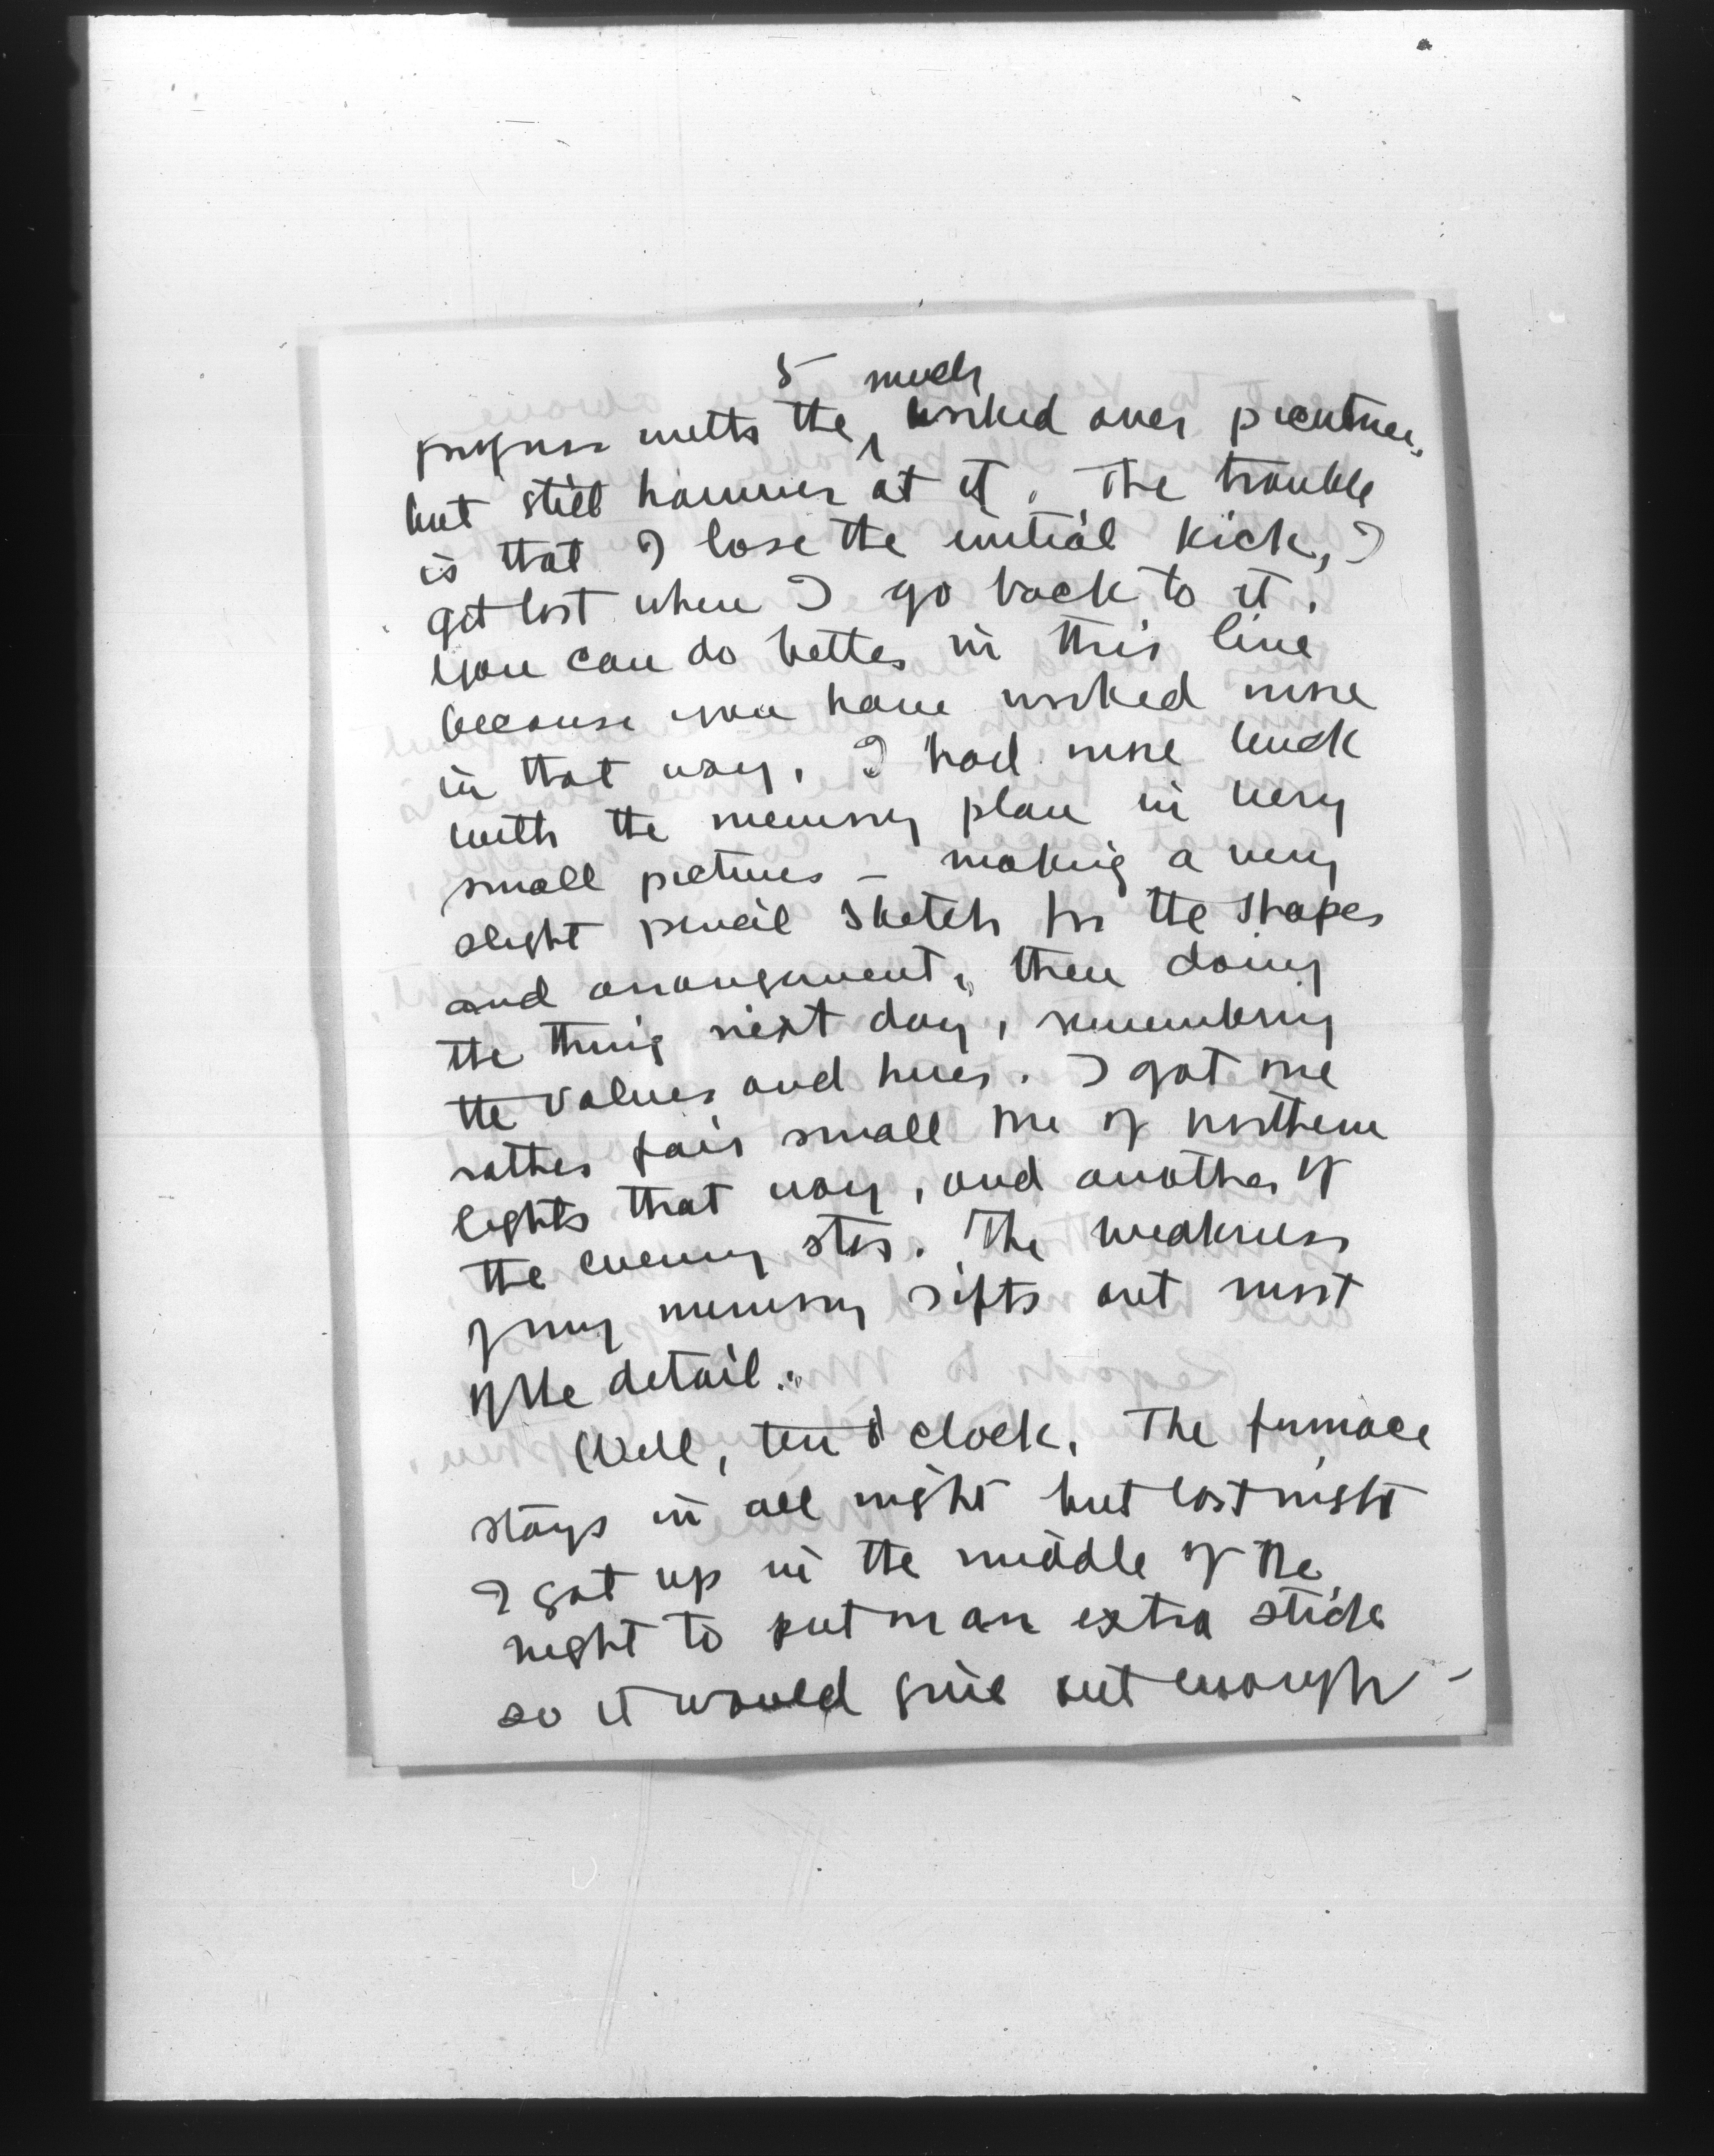 5
progress with the much worked over picutures,
but still hammer at it. The trouble
is that I lose the initial kick, I
get lost when I go back to it.
You can do better in this line
because you have worked more
in that way. I had more luck
with the memory plan in very
small pictures – making a very
slight pencil sketch for the shapes
and arrangement, then doing
the thing next day, remembering
the values and hues. I got one
rather fair small one of northern
lights that way, and another of
the evening star. The weakness
of my memory sifts out most
of the detail.
Well, ten o'clock. The furnace
stays in all night but last night
I got up in the middle of the
night to put on an extra stick
so it would give out enough –